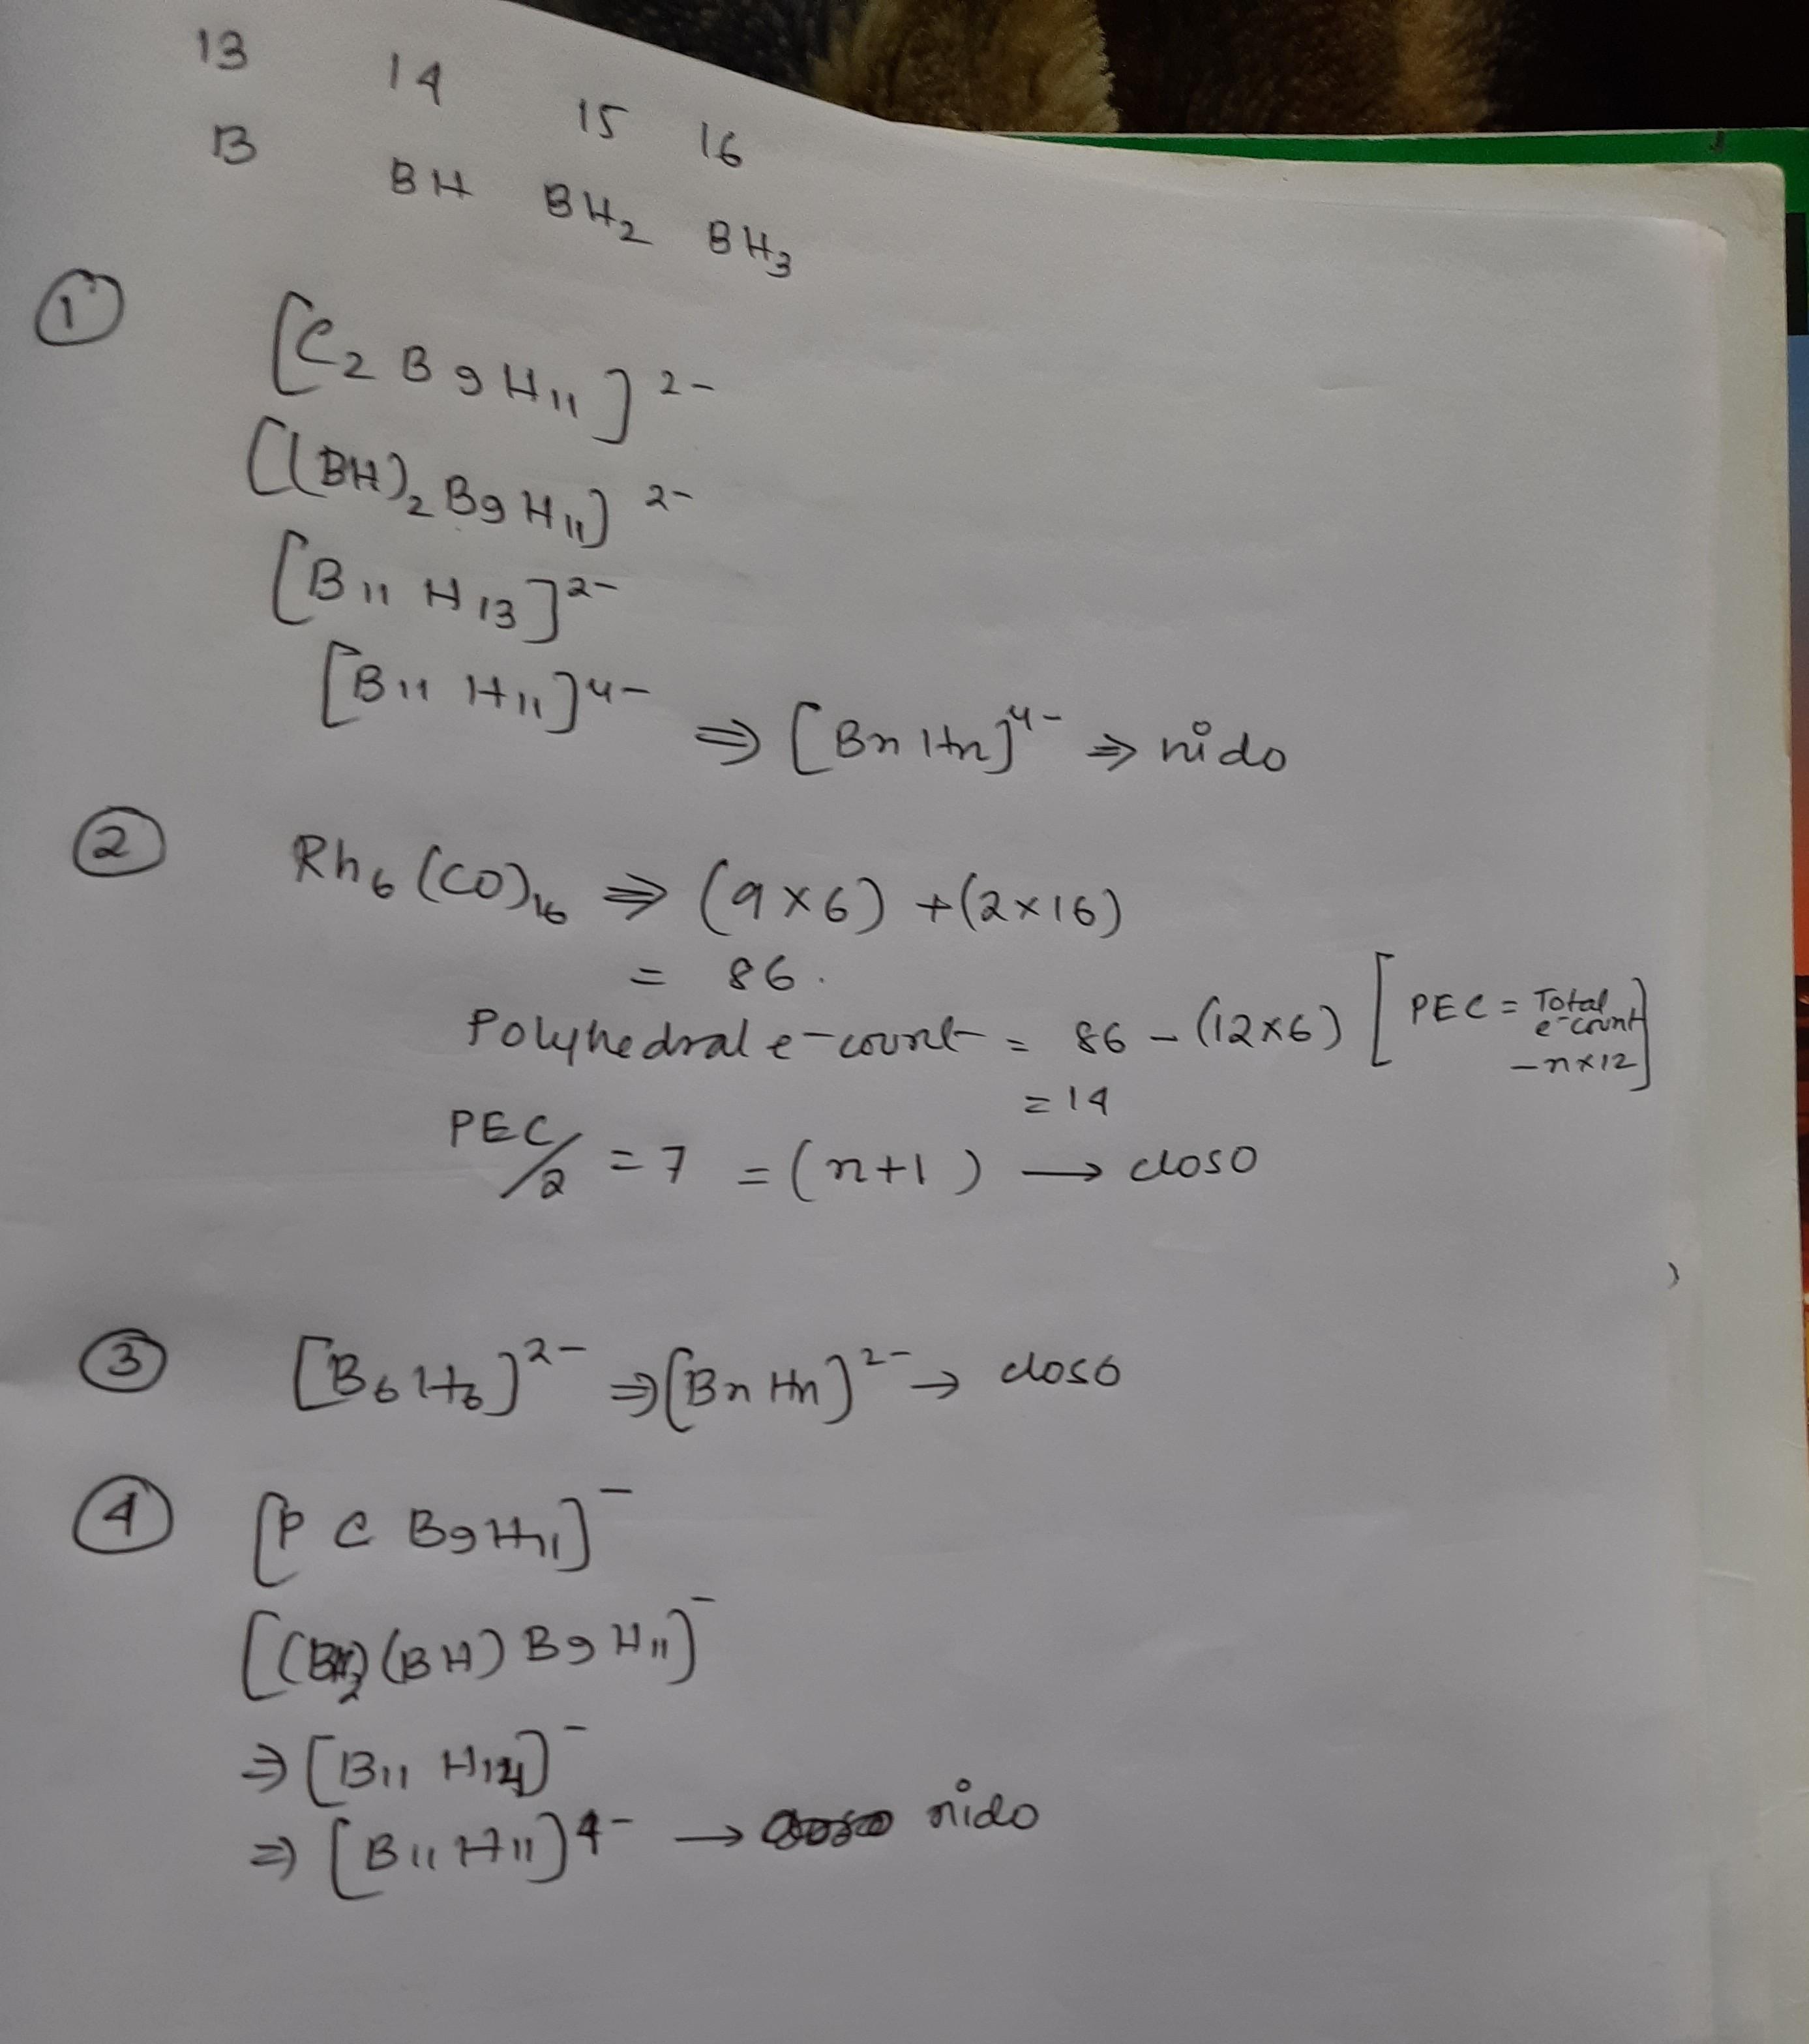 13 14 15 16
B BH BH₂ BH₃
① [C₂B₉H₁₁]²⁻
[(BH)₂B₉H₁₁]²⁻
[B₁₁H₁₃]²⁻
[B₁₁H₁₁]⁴⁻ ⇒ [BnHn]⁴⁻ ⇒ nido
② Rh₆(CO)₁₆ ⇒ (9×6) + (2×16)
= 86.
Polyhedral e⁻count = 86 − (12×6) [PEC = Total e⁻count − n×12]
= 14
PEC/2 = 7 = (n+1) → closo
③ [B₆H₆]²⁻ ⇒ [BnHn]²⁻ → closo
④ [P C B₉H₁₁]⁻
[(BH₂)(BH)B₉H₁₁]⁻
⇒ [B₁₁H₁₄]⁻
⇒ [B₁₁H₁₁]⁴⁻ → nido